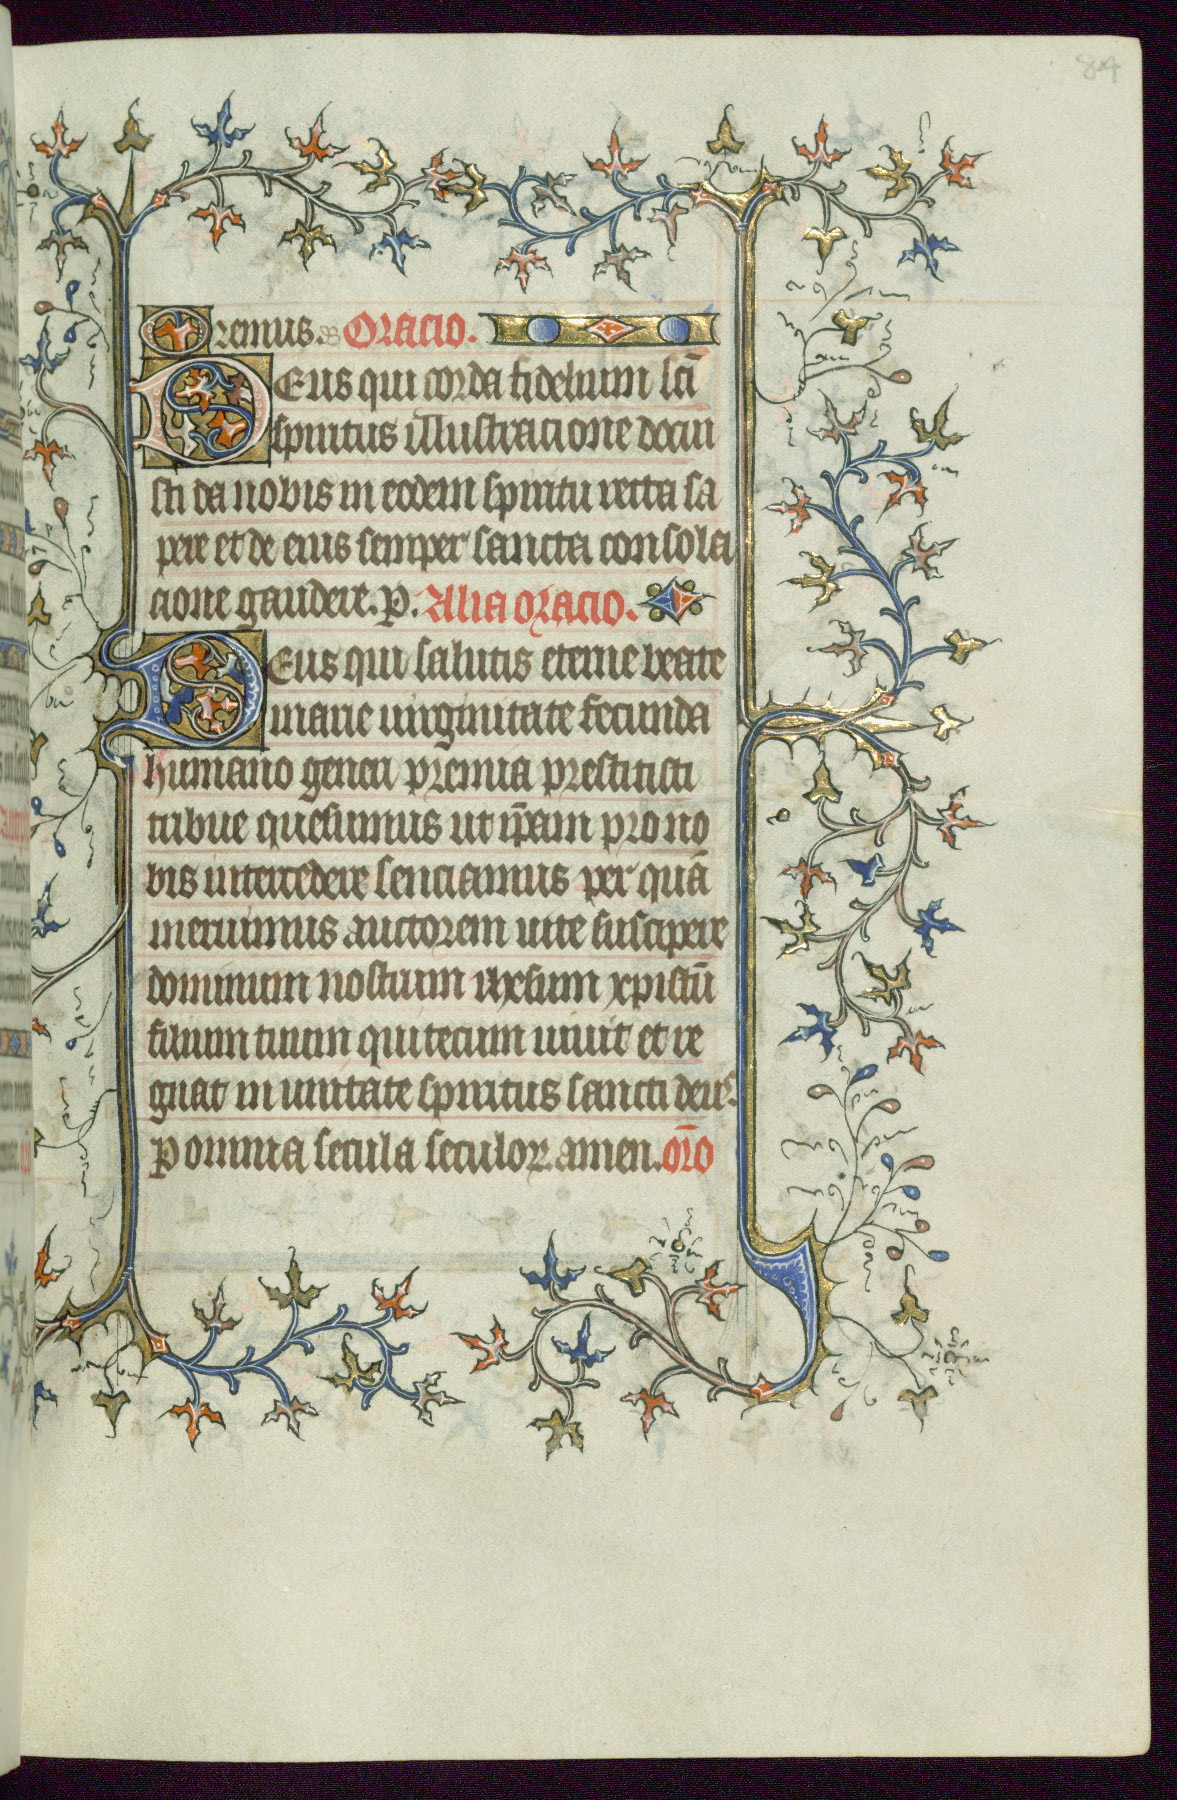 84
Oremus. Oracio.
Deus qui corda fidelium scī
spiritus illustracione docui
sti da nobis in eodem spiritu recta sa
pere et de eius semper sancta consola
cione gaudere. P. Alia oracio.
Deus qui salutis eterne beate
marie uirginitate fecunda
humano generi premia prestitisti
tribue quesumus ut ip̄am pro no
bis intercedere senciamus per quā
meruimus auctorem uite suscipere
dominum nostrum ihesum xpistū
filium tuum qui tecum uiuit et re
gnat in unitate spiritus sancti deus
P omnia secula seculoꝝ. amen. oro